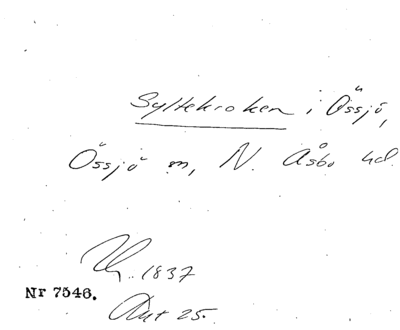 Syltekroken i Össjö,
Össjö sn, N. Åsbo hd.
1837
Nr 7546.
Akt 25.